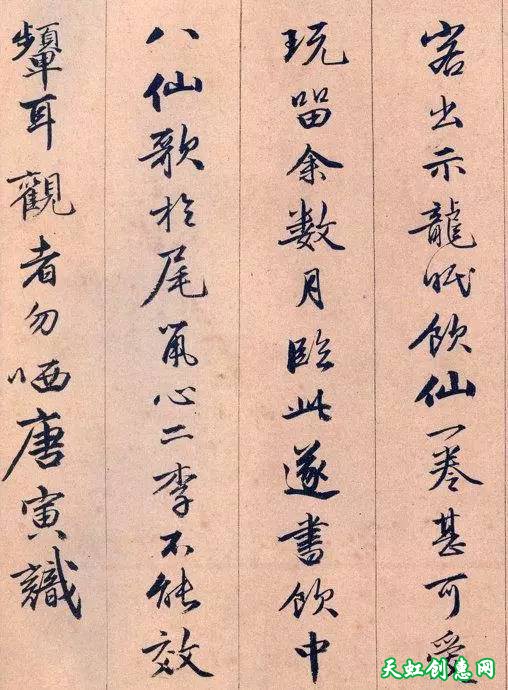 客出示龍眠飲仙一卷甚可愛
玩留余數月臨此遂書飲中
八仙歌於尾心二李不能效
顰耳觀者勿哂唐寅識
天虹创惠网